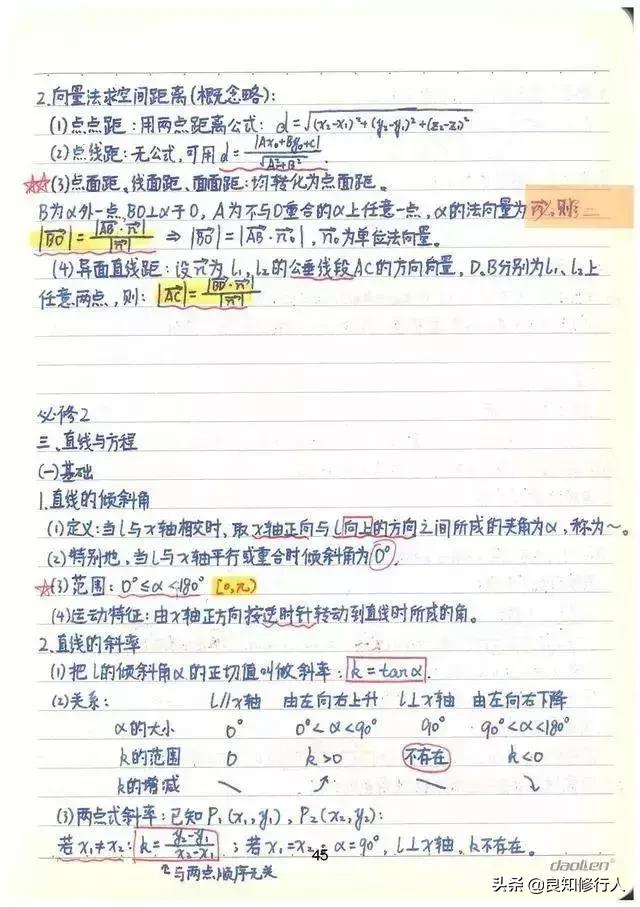 2.向量法求空间距离(概念略):
(1)点点距:用两点距离公式: d=√((x₂-x₁)²+(y₂-y₁)²+(z₂-z₁)²)
(2)点线距:无公式,可用 d=|Ax₀+By₀+C|/√(A²+B²).
☆☆(3)点面距、线面距、面面距:均转化为点面距。
B为α外一点,BO⊥α于O,A为不与O重合的α上任意一点,α的法向量为n⃗,则:
|BO⃗|=|AB⃗·n⃗|/|n⃗| ⇒ |BO⃗|=|AB⃗·n⃗₀|,n⃗₀为单位法向量。
(4)异面直线距:设n⃗为l₁,l₂的公垂线段AC的方向向量,D、B分别为l₁、l₂上
任意两点,则: |AC⃗|=|BD⃗·n⃗|/|n⃗|
必修2
三、直线与方程
(一)基础
1.直线的倾斜角
(1)定义:当l与x轴相交时,取x轴正向与l向上的方向之间所成的夹角为α,称为~。
(2)特别地,当l与x轴平行或重合时倾斜角为0°.
☆(3)范围:0°≤α<180° [0,π)
(4)运动特征:由x轴正方向按逆时针转动到直线时所成的角。
2.直线的斜率
(1)把l的倾斜角α的正切值叫做斜率:k=tanα.
(2)关系: l//x轴 由左向右上升 l⊥x轴 由左向右下降
α的大小 0° 0°<α<90° 90° 90°<α<180°
k的范围 0 k>0 不存在 k<0
k的增减 \ ↗ \ ↘
(3)两点式斜率:已知P₁(x₁,y₁),P₂(x₂,y₂):
若x₁≠x₂: k=(y₂-y₁)/(x₂-x₁) ;若x₁=x₂:α=90°,l⊥x轴,k不存在。
45
与两点顺序无关
daolen
头条 @良知修行人